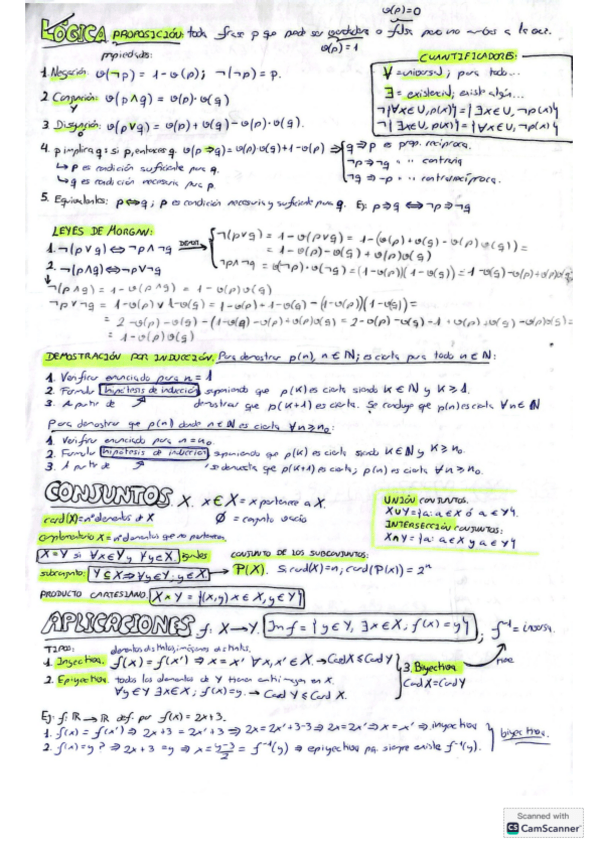 v(p)=0
LÓGICA PROPOSICIÓN: toda frase p que puede ser verdadera o falsa pero no ambas a la vez.
v(p)=1
propiedades:
1. Negación: v(¬p) = 1-v(p); ¬(¬p) = p.
2. Conjunción: v(p∧q) = v(p)·v(q)
y
3. Disyunción: v(p∨q) = v(p)+v(q)-v(p)·v(q).
CUANTIFICADORES:
∀ = universal; para todo...
∃ = existencial; existe algún...
¬{∀x∈U, p(x)} = {∃x∈U, ¬p(x)}
¬{∃x∈U, p(x)} = {∀x∈U, ¬p(x)}
4. p implica q: si p, entonces q. v(p⇒q) = v(p)·v(q)+1-v(p) ⇒ q⇒p es prop. recíproca.
↳ p es condición suficiente para q. ¬p⇒¬q " " contraria
↳ q es condición necesaria para p. ¬q⇒¬p " " contrarrecíproca.
5. Equivalentes: p⇔q; p es condición necesaria y suficiente para q. Ej: p⇒q ⇔ ¬p⇒¬q
LEYES DE MORGAN:
1. ¬(p∨q) ⇔ ¬p∧¬q
¬(p∨q) = 1-v(p∨q) = 1-(v(p)+v(q)-v(p)v(q)) =
= 1-v(p)-v(q)+v(p)v(q)
2. ¬(p∧q) ⇔ ¬p∨¬q
¬p∧¬q = v(¬p)·v(¬q) = (1-v(p))(1-v(q)) = 1-v(q)-v(p)+v(p)v(q)
¬(p∧q) = 1-v(p∧q) = 1-v(p)v(q)
¬p∨¬q = 1-v(p)∨1-v(q) = 1-v(p)+1-v(q)-(1-v(p))(1-v(q)) =
= 2-v(p)-v(q)-(1-v(q)-v(p)+v(p)v(q)) = 2-v(p)-v(q)-1+v(p)+v(q)-v(p)v(q) =
= 1-v(p)v(q)
DEMOSTRACIÓN POR INDUCCIÓN. Para demostrar p(n), n∈ℕ; es cierta para todo n∈ℕ:
1. Verificar enunciado para n=1
2. Formular hipótesis de inducción suponiendo que p(k) es cierta siendo k∈ℕ y k≥1.
3. A partir de demostrar que p(k+1) es cierta. Se concluye que p(n) es cierta ∀n∈ℕ
Para demostrar que p(n) donde n∈ℕ es cierta ∀n≥n₀:
1. Verificar enunciado para n=n₀.
2. Formular hipótesis de inducción suponiendo que p(k) es cierta siendo k∈ℕ y k≥n₀.
3. A partir de se demuestra que p(k+1) es cierta; p(n) es cierta ∀n≥n₀.
CONJUNTOS X. x∈X = x pertenece a X.
card(X) = nº elementos de X ∅ = conjunto vacío
complementario X = nº elementos que no pertenecen.
UNIÓN CONJUNTOS:
X∪Y = {a: a∈X ó a∈Y}
INTERSECCIÓN CONJUNTOS:
X∩Y = {a: a∈X y a∈Y}
X=Y si ∀x∈Y y ∀y∈X iguales
CONJUNTO DE LOS SUBCONJUNTOS:
subconjunto: Y⊆X ⇒ ∀y∈Y; y∈X → P(X). Si card(X)=n; card(P(X)) = 2ⁿ
PRODUCTO CARTESIANO: X×Y = {(x,y) x∈X, y∈Y}
APLICACIONES f: X→Y. Im f = {y∈Y, ∃x∈X; f(x)=y}; f⁻¹ = inversa.
TIPOS: elementos distintos, imágenes distintas.
1. Inyectiva. f(x)=f(x') ⇒ x=x' ∀x,x'∈X. → Card X ≤ Card Y
2. Epiyectiva. todos los elementos de Y tienen antiimagen en X.
∀y∈Y ∃x∈X; f(x)=y. → Card Y ≤ Card X.
3. Biyectiva
Card X = Card Y
Ej: f: ℝ→ℝ def. por f(x) = 2x+3.
1. f(x)=f(x') ⇒ 2x+3 = 2x'+3 ⇒ 2x=2x'+3-3 ⇒ 2x=2x' ⇒ x=x' ⇒ inyectiva
2. f(x)=y? ⇒ 2x+3=y ⇒ x = y-3/2 = f⁻¹(y) ⇒ epiyectiva pq. siempre existe f⁻¹(y).
biyectiva.
Scanned with
CS CamScanner